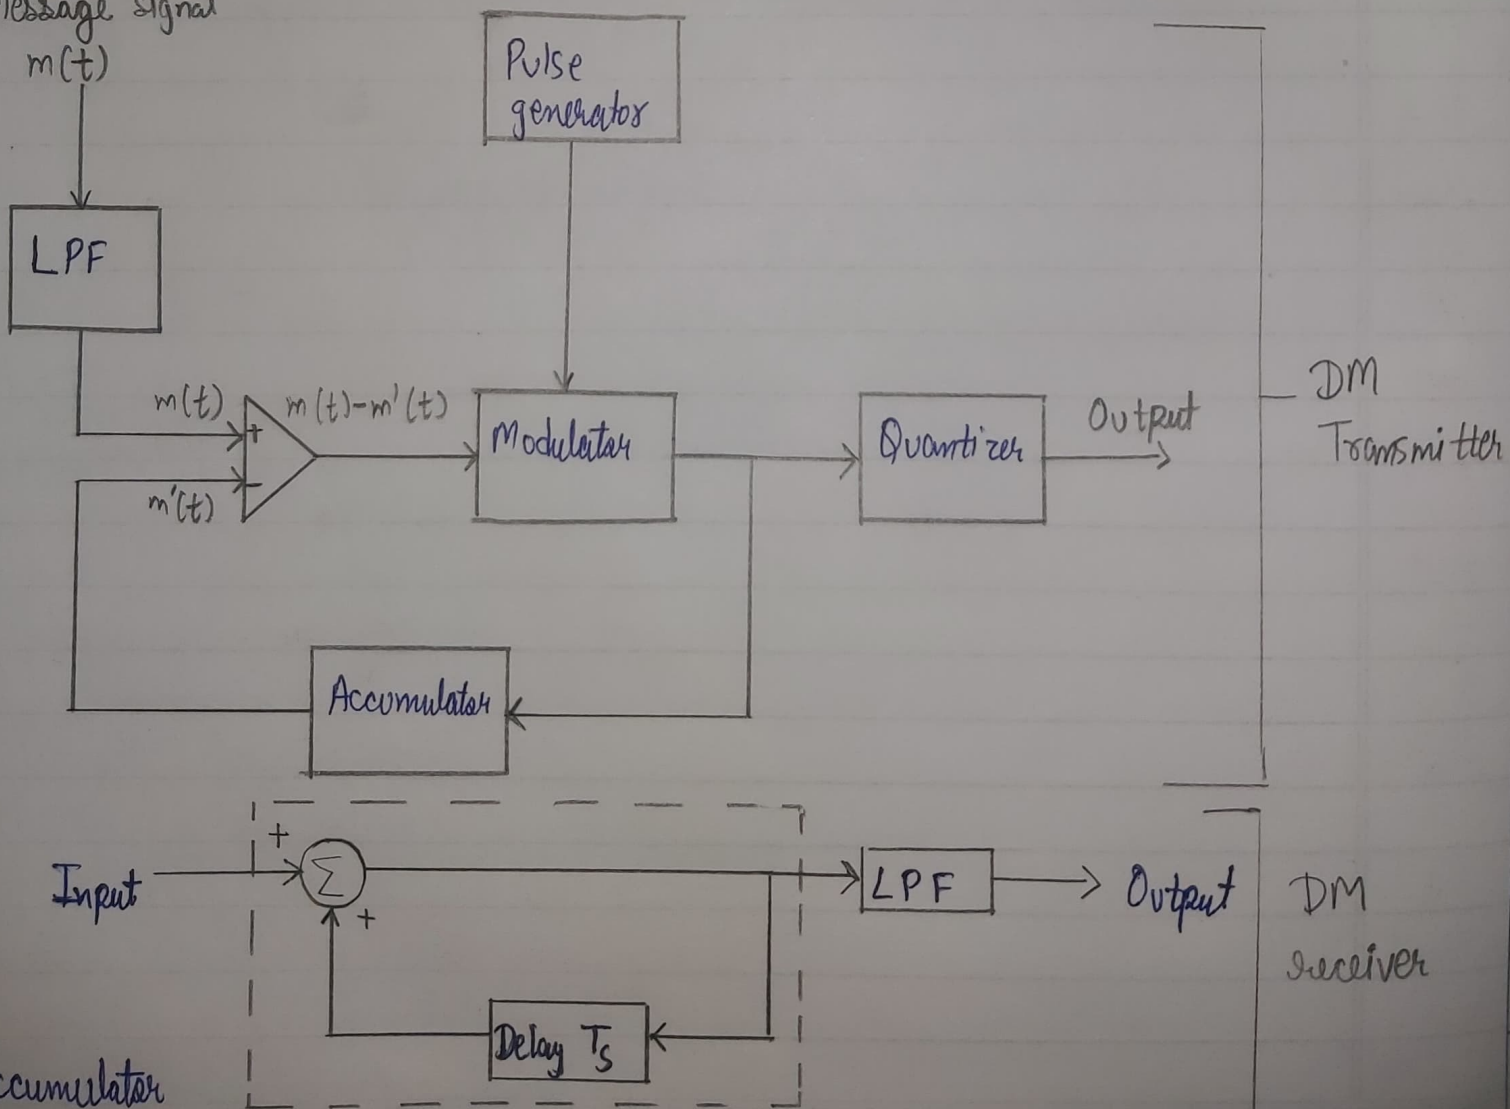 message signal
m(t)
Pulse
generator
LPF
m(t)
+
m(t)-m'(t)
Modulator
Quantizer
Output
DM
Transmitter
-
m'(t)
Accumulator
+
Input
Σ
+
LPF
Output
DM
receiver
Delay Ts
Accumulator